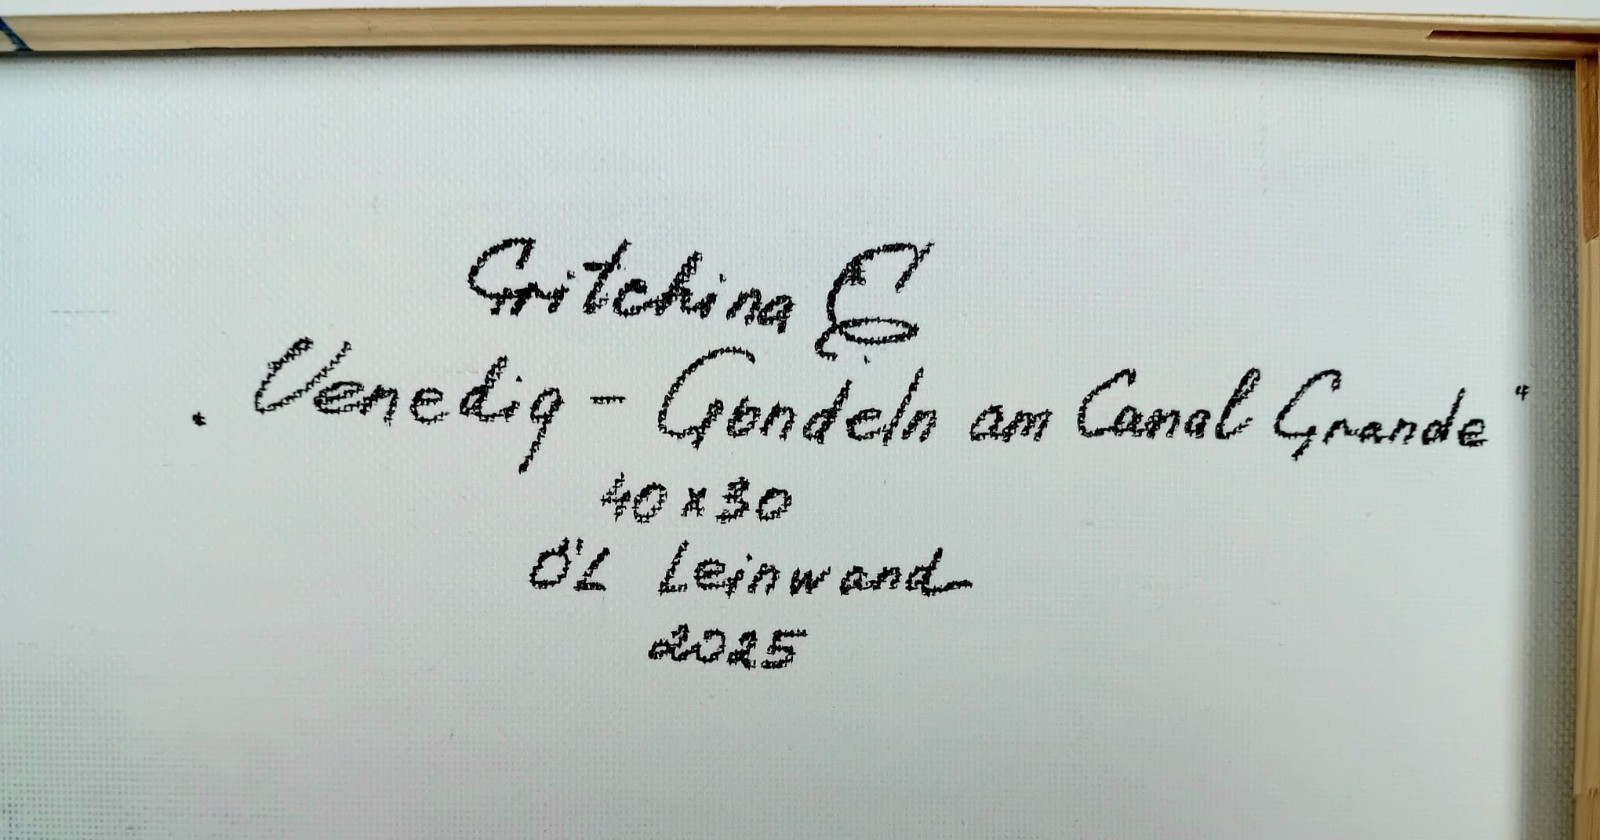 Gritchina E
„Venedig - Gondeln am Canal Grande"
40x30
ÖL Leinwand
2025